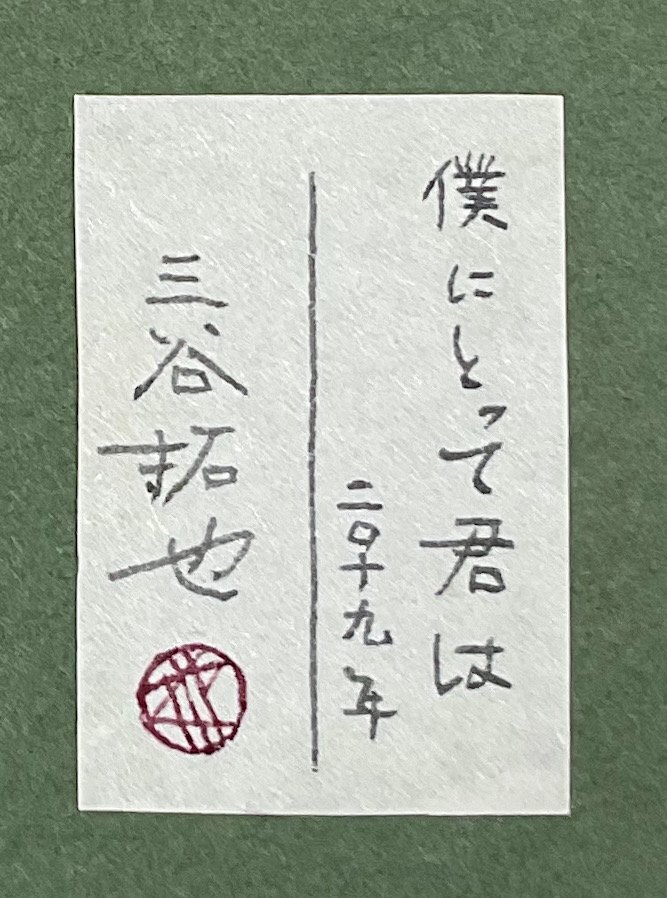 僕にとって君は
二〇十九年
三谷拓也